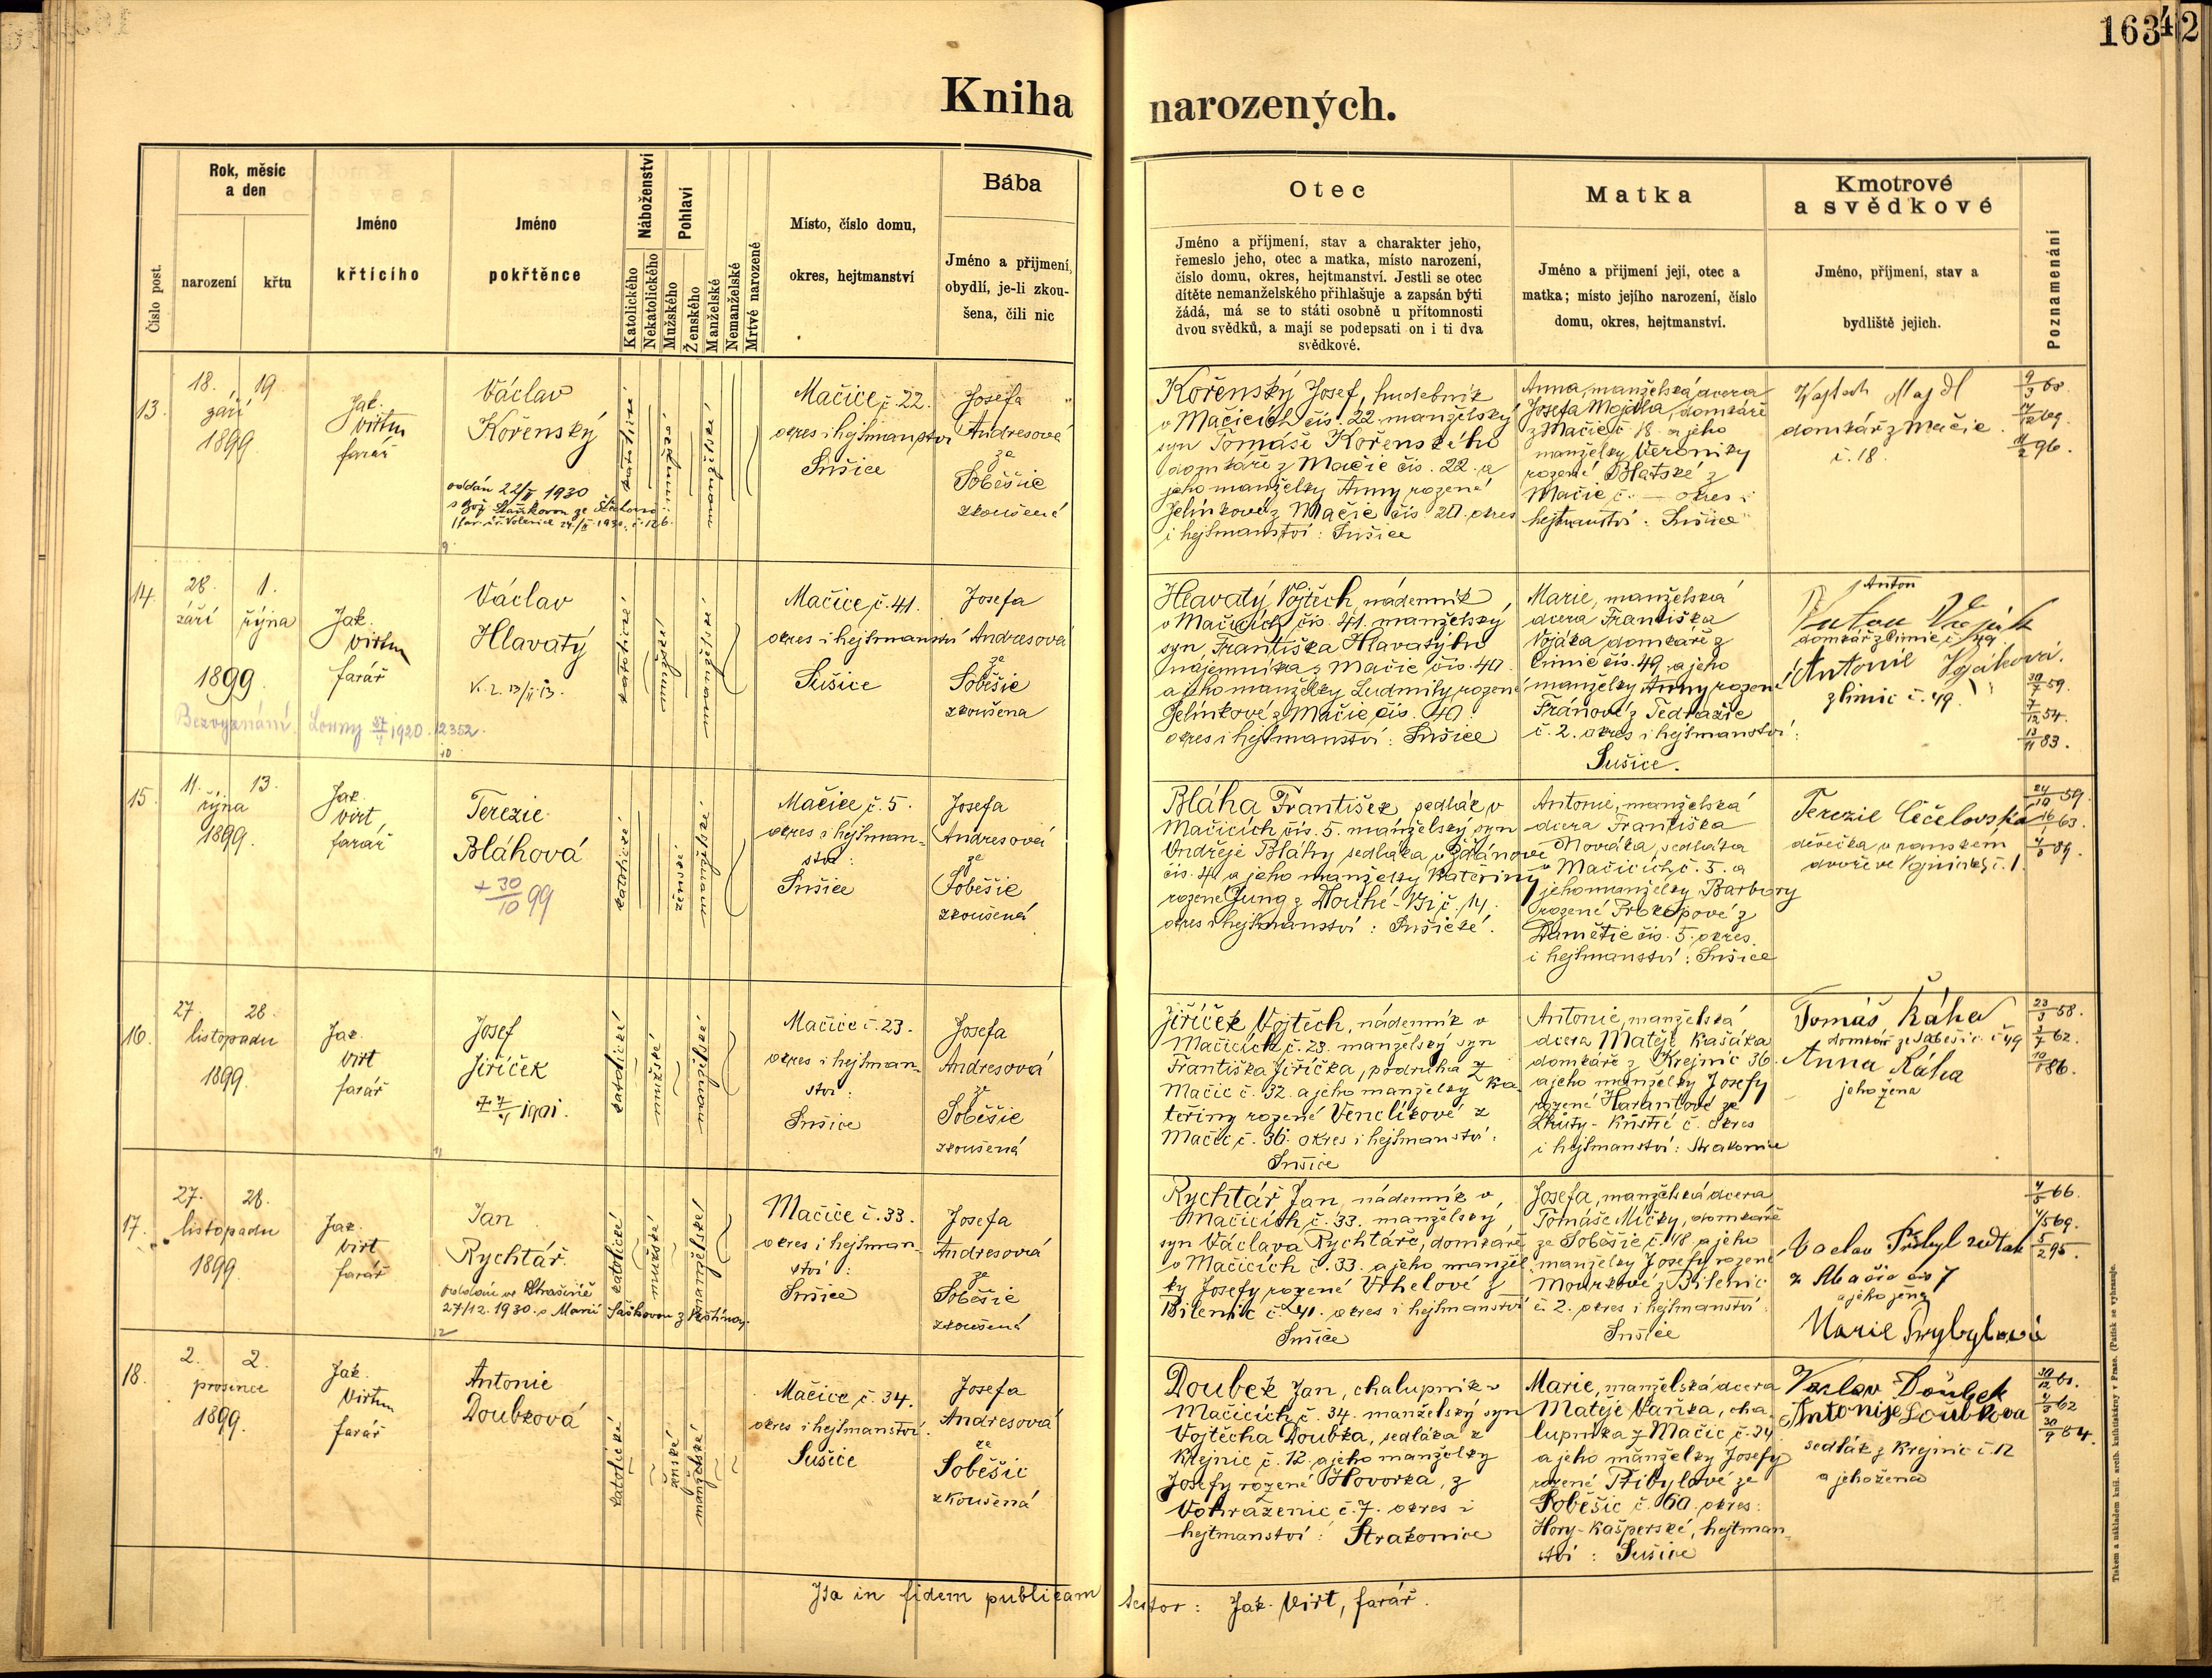 163 42
Kniha narozených.
Číslo post.
Rok, měsíc a den
narození
křtu
Jméno křtícího
Jméno pokřtěnce
Náboženství
Katolického
Nekatolického
Pohlaví
Mužského
Ženského
Manželské
Nemanželské
Mrtvě narozené
Místo, číslo domu,
okres, hejtmanství
Bába
Jméno a přijmení,
obydlí, je-li zkou-
šena, čili nic
Otec
Jméno a příjmení, stav a charakter jeho,
řemeslo jeho, otec a matka, místo narození,
číslo domu, okres, hejtmanství. Jestli se otec
dítěte nemanželského přihlašuje a zapsán býti
žádá, má se to státi osobně u přítomnosti
dvou svědků, a mají se podepsati on i ti dva
svědkové.
Matka
Jméno a přijmení její, otec a
matka; místo jejího narození, číslo
domu, okres, hejtmanství.
Kmotrové
a svědkové
Jméno, příjmení, stav a
bydliště jejich.
Poznamenání
13.
18. 19.
září
1899.
Jak.
Virt
farář
Václav
Kořenský
oddán 22/II 1930
katolické
mužské
manželské
Mačice, č. 22.
okres i hejtmanství
Sušice
Josefa
Andresové
ze
Soběšic
zkoušené
Kořenský Josef, hudebník
v Mačicích čís. 22. manželský
syn Tomáše Kořenského
domkáře z Mačic čís. 22. a
jeho manželky Anny rozené
Jelínkové z Mačic čís. 20. okres
i hejtmanství: Sušice
Anna, manželská dcera
Josefa Majdla, domkáře
z Mačic č. 18. a jeho
manželky Veroniky
rozené Blatské z
Mačic č. — okres i
hejtmanství: Sušice
Vojtech Majdl
domkář z Mačic
č. 18.
9/3 68.
14.
28. 1.
září října
1899.
Jak.
Virt
farář
Václav
Hlavatý
Bez vyznání. Louny 1920. 12352.
10
katolické
mužské
manželské
Mačice, č. 41.
okres i hejtmanství
Sušice
Josefa
Andresová
ze
Soběšic
zkoušena
Hlavatý Vojtěch, nádenník
v Mačicích čís. 41. manželský
syn Františka Hlavatýho
nájemníka z Mačic čís. 40.
a jeho manželky Ludmily rozené
Jelínkové z Mačic čís. 40.
okres i hejtmanství: Sušice
Marie, manželská
dcera Františka
Vojáka domkáře z
Čimic čís. 49. a jeho
manželky Anny rozené
Fránové z Tedražic
č. 2. okres i hejtmanství:
Sušice.
Anton
domkář z Čimic č. 49
Antonie Vojáková.
z Čimic č. 49.
30/7 59.
7/12 54.
13/11 83.
15.
11. 13.
října
1899.
Jak.
Virt
farář
Terezie
Bláhová
+ 30/10 99
katolické
ženské
manželské
Mačice, č. 5.
okres i hejtman-
ství:
Sušice
Josefa
Andresová
ze
Soběšic
zkoušená
Bláha František, sedlák v
Mačicích čís. 5. manželský syn
Ondřeje Bláhy sedláka v Ždánově
čís. 4. a jeho manželky Kateřiny
rozené Jung z Dlouhé-Vsi č. 14.
okres i hejtmanství: Sušické.
Antonie, manželská
dcera Františka
Nováka, sedláka
v Mačicích, č. 5. a
jeho manželky Barbory
rozené Prokopové z
Damětic čís. 5. okres
i hejtmanství: Sušice
Terezie
děvečka v panském
dvoře č. 1.
24/10 59.
16/1 63.
16.
27. 28.
listopadu
1899.
Jak.
Virt
farář
Josef
Jiříček
1901.
11
katolické
mužské
manželské
Mačice č. 23.
okres i hejtman-
ství:
Sušice
Josefa
Andresová
ze
Soběšic
zkoušená
Jiříček Vojtěch, nádenník v
Mačicích č. 23. manželský syn
Františka Jiříčka, podruha z
Mačic č. 32. a jeho manželky Ka-
teřiny rozené Venclíkové z
Mačic č. 36. okres i hejtmanství:
Sušice
Antonie, manželská
dcera Matěje Kašáka
domkáře z Krejnic 36.
a jeho manželky Josefy
rozené Harantové ze
Lhůty- č. okres
i hejtmanství: Strakonice
Tomáš Káha
domkář ze Soběšic č. 49
Anna Káha
jeho žena
23/3 58.
3/7 62.
17.
27. 28.
listopadu
1899.
Jak.
Virt
farář
Jan
Rychtář.
oddáni ve Strašíně
27/12. 1930. s Marií Saškovou z
12
katolické
mužské
manželské
Mačice č. 33.
okres i hejtman-
ství:
Sušice
Josefa
Andresová
ze
Soběšic
zkoušená
Rychtář Jan, nádenník v
Mačicích, č. 33. manželský
syn Václava Rychtáře, domkáře
v Mačicích č. 33. a jeho manžel-
ky Josefy rozené Uhelové z
Bilenic č. 41. okres i hejtmanství
Sušice
Josefa, manželská dcera
Tomáše Mičky, domkáře
ze Soběšic č. 48. a jeho
manželky Josefy rozené
Mourkové z Bilenic
č. 2. okres i hejtmanství:
Sušice
Vaclav Přibyl sedlak
z Mačic čis 7
a jeho žena
Marie
4/5 66.
5/2 95.
18.
2. 2.
prosince
1899.
Jak.
Virt
farář
Antonie
Doubková
katolické
ženské
manželské
Mačice č. 34.
okres i hejtmanství:
Sušice
Josefa
Andresová
ze
Soběšic
zkoušená
Doubek Jan, chalupník v
Mačicích, č. 34. manželský syn
Vojtěcha Doubka, sedláka z
Krejnic č. 12. a jeho manželky
Josefy rozené Hovorka, z
Vohraženic č. 7. okres i
hejtmanství: Strakonice
Marie, manželská dcera
Matěje Vaňka, cha-
lupníka z Mačic, č. 34
a jeho manželky Josefy
rozené Přibylové ze
Soběšic č. 60. okres:
Hory-Kašperské, hejtman-
ství: Sušice
Václav Doubek
Antonije Doubkova
sedlák z Krejnic č. 12
a jeho žena
Ita in fidem publicam testor: Jak. Virt, farář.